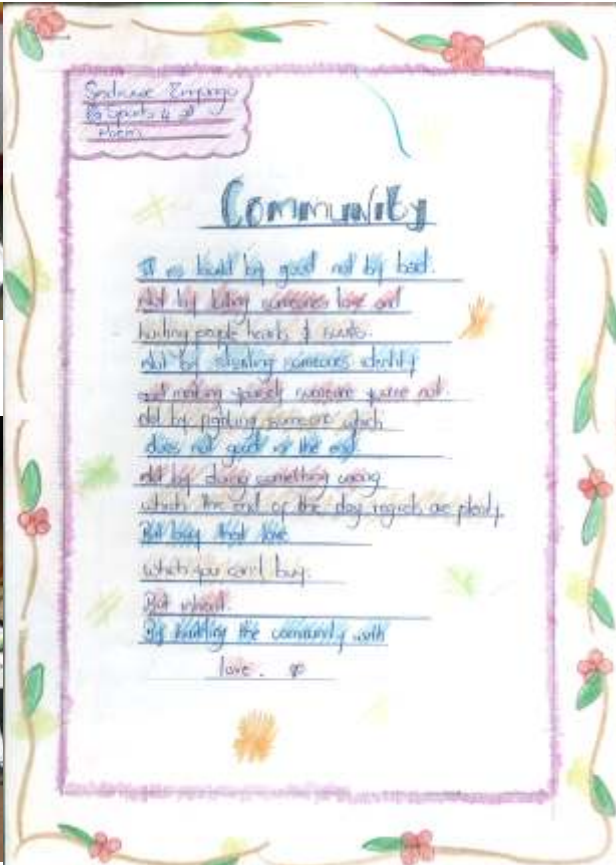 Poem
Community
It is build by good not by bad.
Not by killing someones love and
hurting people hearts & souls.
Not by stealing someones identity
and making yourself someone youre not.
Not by fighting someone which
does not good in the end.
Not by doing something wrong
which the end of the day regrets are plenty.
But by that love
which you can't buy.
But inherit.
By building the community with
love.